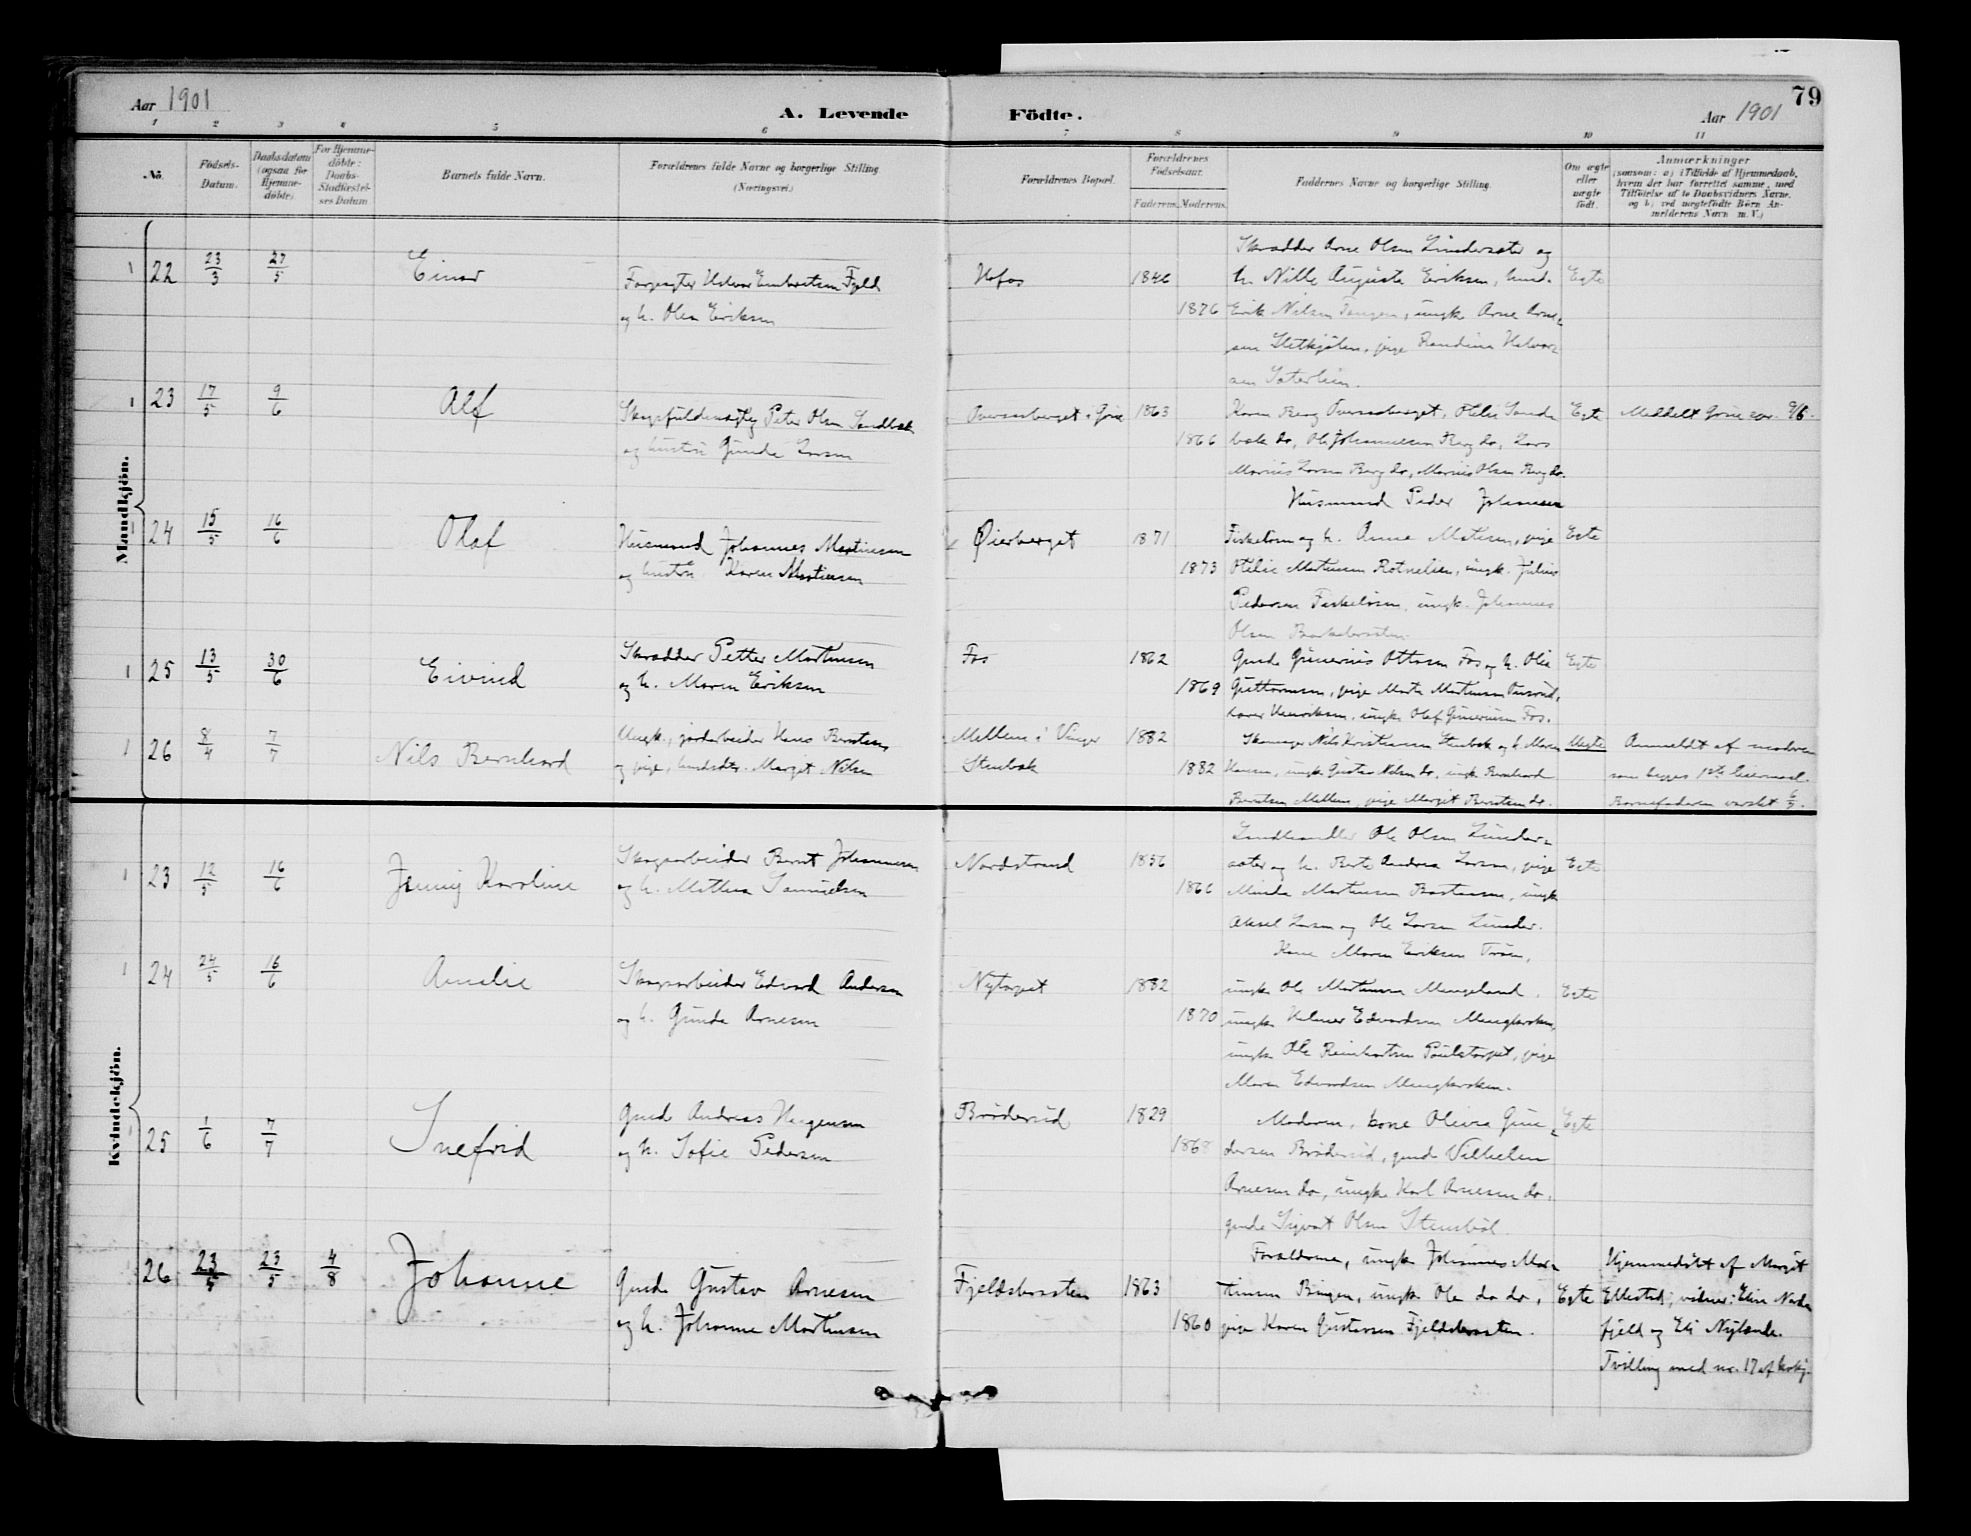 Aar 1901
A. Levende
Födte.
Aar 1901
79
1 2 3 4 5 6 7 8 9 10 11
No.
Födsels-
Datum.
Daabsdatum
(ogsaa for
Hjemme-
döbte)
For Hjemme-
döbte:
Daabs-
Stadfæstel-
ses Datum
Barnets fulde Navn.
Forældrenes fulde Navne og borgerlige Stilling
(Næringsvei)
Forældrenes Bopæl.
Forældrenes
Födselsaar.
Faderens. Moderens.
Faddernes Navne og borgerlige Stilling.
Om ægte
eller
uægte
födt.
Anmærkninger
(saasom: a) i Tilfælde af Hjemmedaab,
hvem der har forrettet samme, med
Tilföielse af to Daabsvidners Navne,
og b) ved uægtefödte Börn An-
melderens Navn m. V.)
Mandkjön.
22 23/3 27/5 Einar
Forpagter Halvor Embretsen Fjeld
og h. Olea Eriksen
Hofos 1846
1876
Skrædder Arne Olsen Lindersæter og
h. Nille Augusta Eriksen, husm.
Erik Nilsen Tangen, ungk. Arne Arne-
sen Sletkjølen, pige Randine Halvor-
sen Sæterlien.
Egte
23 17/5 9/6 Alf
Peter Olsen Sandbæk
og hustru Gunda Larsen
Overaasberget i Grue 1863
1866
Karen Berg Overaasberget, Otelie Sand-
bæk do, Ole Johannesen Berg do, Lars
Marius Larsen Berg do, Marius Olsen Berg do.
Egte
Meddelt Grue 9/6.
24 15/5 16/6 Olaf
Husmand Johannes Martinsen
og hustru Karen Martinsen
Øierberget 1871
1873
Husmand Peder Johansen
Fiskeløsen og h. Anne Matisen, pige
Otilie Martinsen Rotnelien, ungk. Julius
Pedersen Fiskeløsen, ungk. Johannes
Olsen
Egte
25 13/5 30/6 Eivind
Skrædder Petter Martinsen
og h. Maren Eriksen
Fos 1862
1869
Gmd. Gunerius Ottosen Fos og h. Olea
Guttormsen, pige Marte Martinsen
Henriksen, ungk. Olaf Gunerius Fos.
Egte
26 8/4 7/7 Nils Bernhard
Ungk., jordarbeider Hans Berntsen
og pige, Marget Nilsen
Mellem i Vinger 1882
Stenbæk 1882
Nils Kristiansen Stenbæk og h. Maren
Hansen, ungk. Gustav Nilsen do, ungk. Bernhard
Berntsen Mellem, pige Margit Berntsen do.
Uegte
Anmeldt af moderen
som begges 1ste leiermaal.
Barnefaderen varslet
Kvindekjön.
23 12/5 16/6 Jenny Karoline
Skogsarbeider Bernt Johannesen
og h. Mathea Samuelsen
Nordstrand 1856
1866
Landhandler Ole Olsen Linder-
sæter og h. Berte Andrea Larsen, pige
Minda Martinsen Bastaasen, ungk.
Aksel Larsen og Ole Larsen Linder.
Egte
24 24/5 16/6 Amalie
Skogsarbeider Edvard Andersen
og h. Gunda Arnesen
Nytorpet 1882
1870
Kone Maren Eriksen Trøen,
ungk. Ole Martinsen Mengeland,
ungk. Helmer Edvardsen
ungk. Ole Reinhartsen Paulstorpet, pige
Maren Edvardsen
Egte
25 1/6 7/7 Snefrid
Gmd. Andreas Haagensen
og h. Sofie Pedersen
Brødersrud 1829
1868
Moderen, kone Olivia Gun-
dersen Brødersrud, gmd. Vilhelm
Arnesen do, ungk. Karl Arnesen do,
gmd. Sigvart Olsen
Egte
26 23/5 23/5 4/8 Johanne
Gmd. Gustav Arnesen
og h. Johanne Martinsen
Fjeldsbraaten 1863
1860
Forældrene, ungk. Johannes Mar-
tinsen Bingen, ungk. Ole do do,
pige Karen Gustavsen Fjeldsbraaten.
Egte
Hjemmedøbt af Margit
Ellestad; vidner: Elise Norden-
fjeld og Eli Nylænde.
Tvilling med no. 17 af